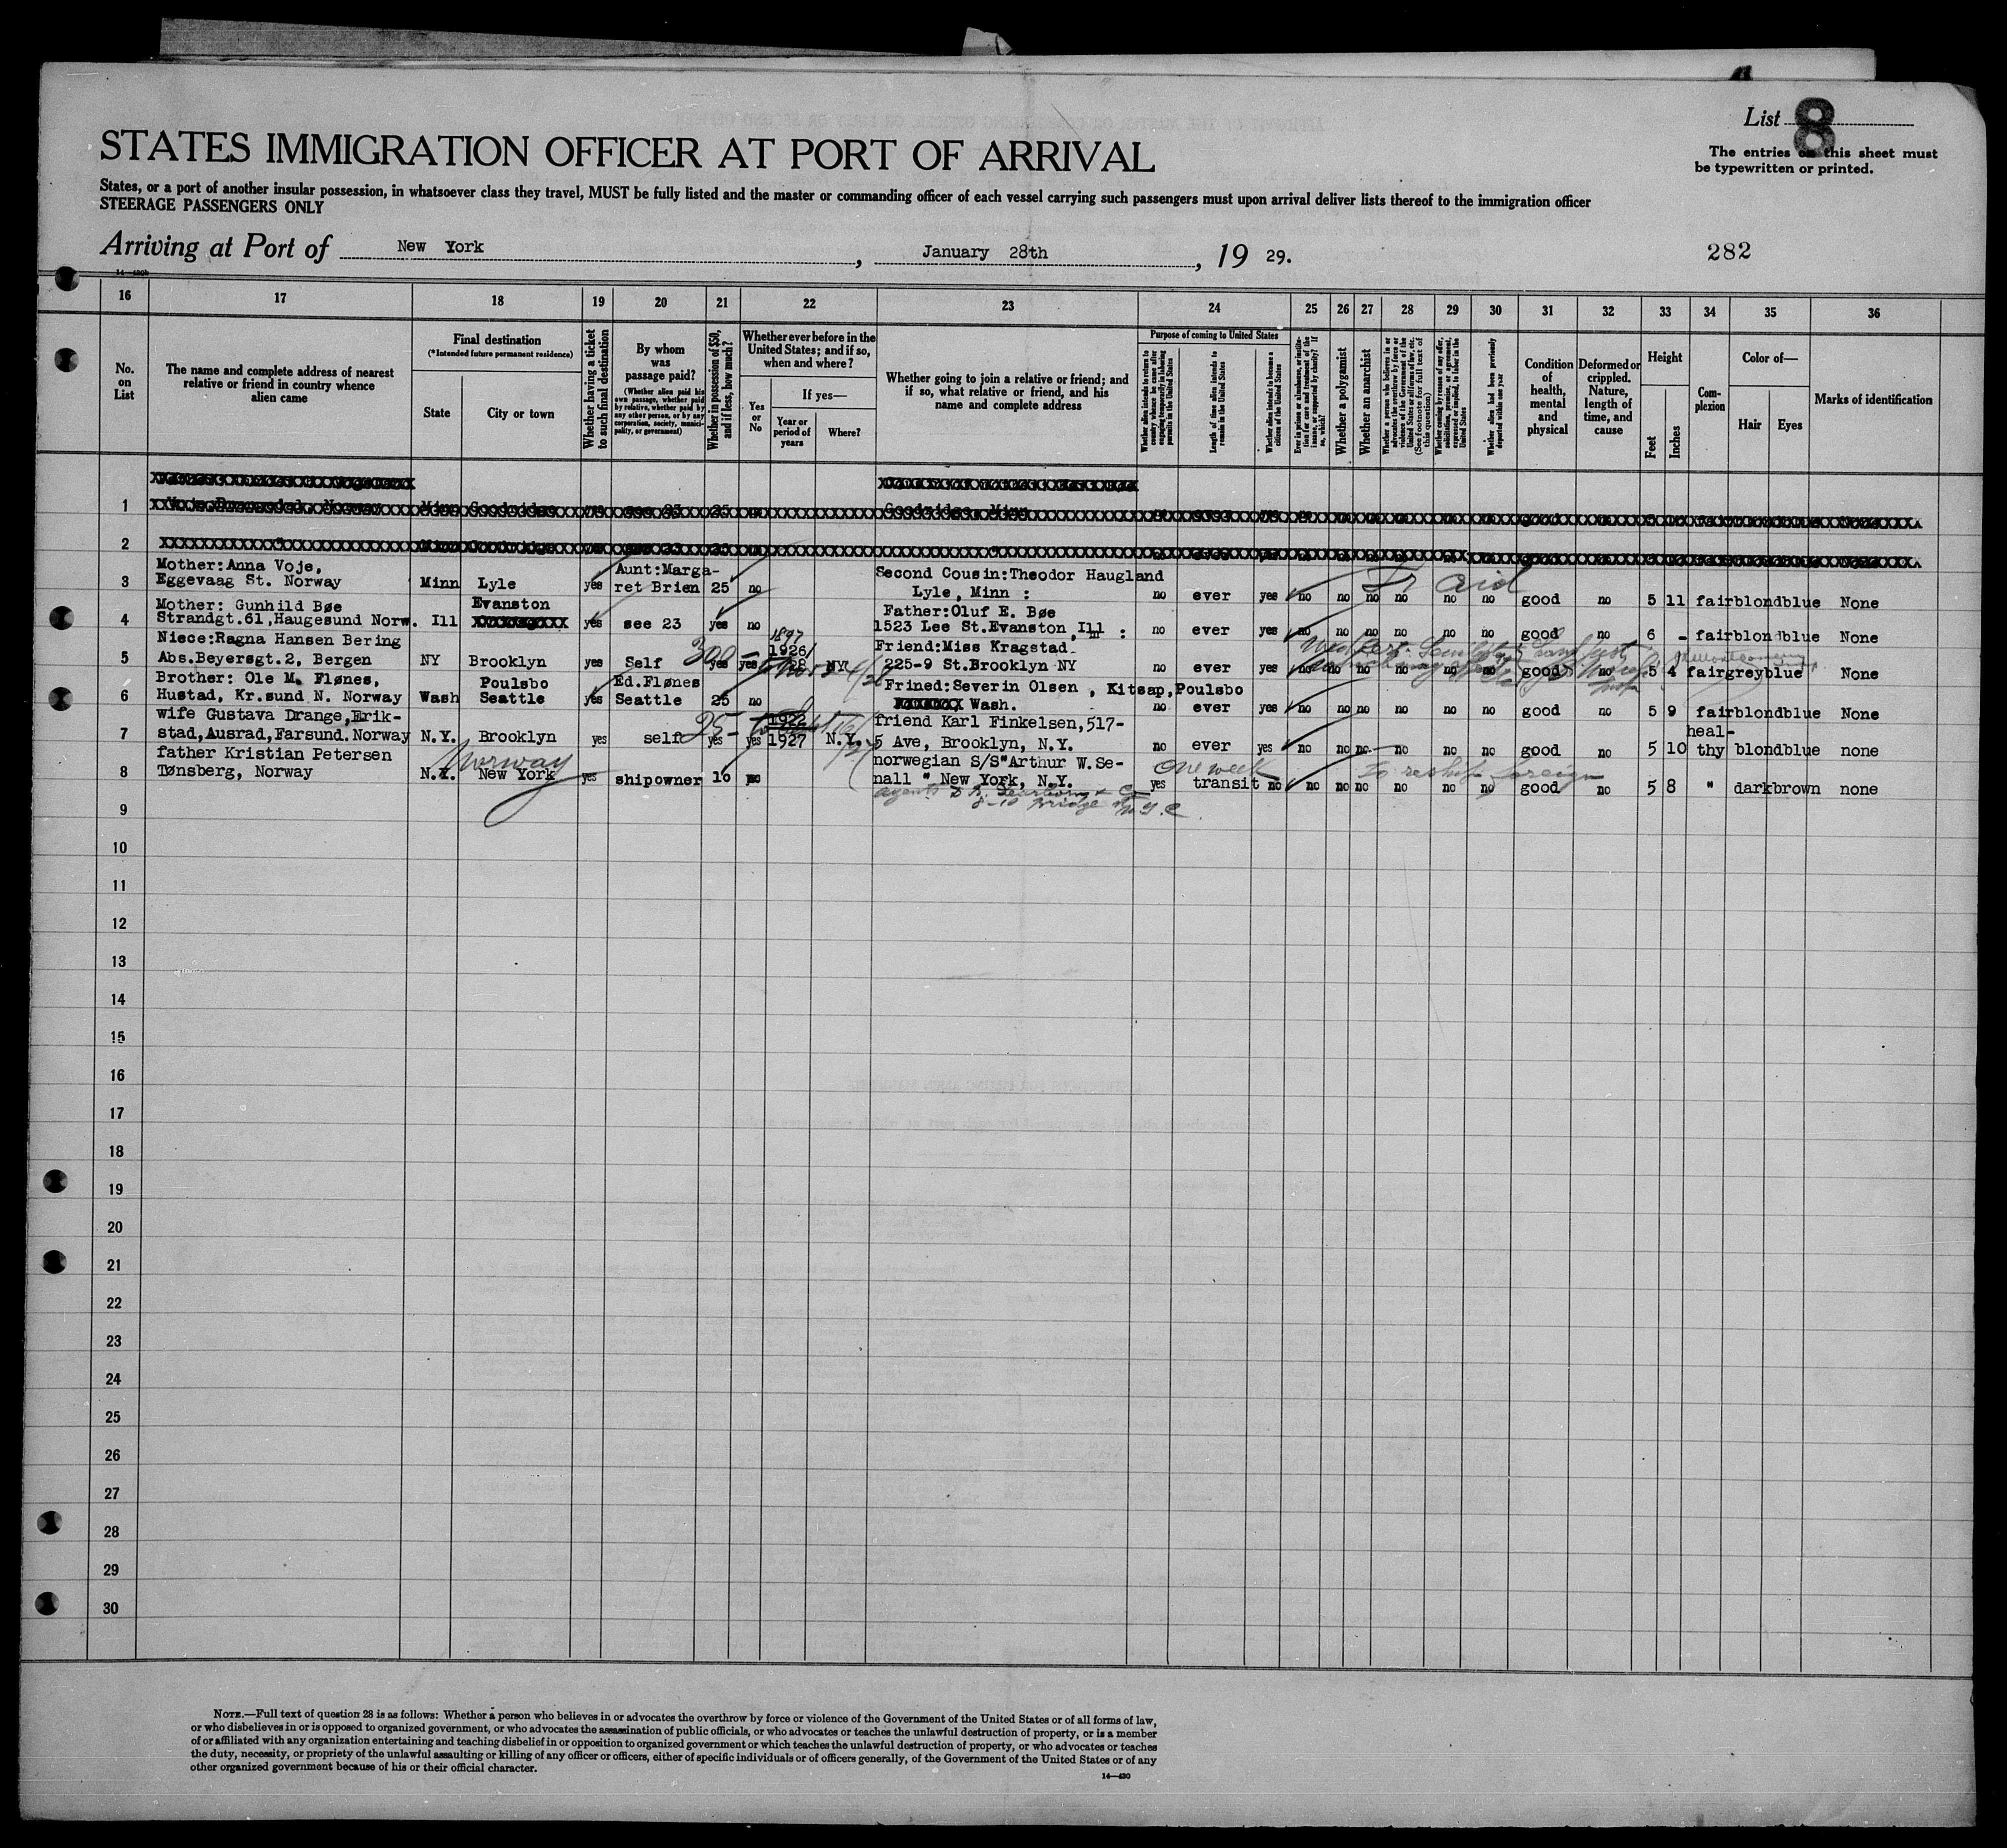 List 8
The entries on this sheet must
be typewritten or printed.
STATES IMMIGRATION OFFICER AT PORT OF ARRIVAL
States, or a port of another insular possession, in whatsoever class they travel, MUST be fully listed and the master or commanding officer of each vessel carrying such passengers must upon arrival deliver lists thereof to the immigration officer
STEERAGE PASSENGERS ONLY
Arriving at Port of New York, January 28th, 19 29.
282
14-430b
16 17 18 19 20 21 22 23 24 25 26 27 28 29 30 31 32 33 34 35 36
No. on List
The name and complete address of nearest relative or friend in country whence alien came
Final destination
(*Intended future permanent residence)
State
City or town
Whether having a ticket to such final destination
By whom was passage paid?
(Whether alien paid his own passage, whether paid by relative, whether paid by any other person, or by any corporation, society, municipality, or government)
Whether in possession of $50, and if less, how much?
Whether ever before in the United States; and if so, when and where?
Yes or No
If yes—
Year or period of years
Where?
Whether going to join a relative or friend; and if so, what relative or friend, and his name and complete address
Purpose of coming to United States
Whether alien intends to return to country whence he came after engaging temporarily in laboring pursuits in the United States
Length of time alien intends to remain in the United States
Whether alien intends to become a citizen of the United States
Ever in prison or almshouse, or institution for care and treatment of the insane, or supported by charity? If so, which?
Whether a polygamist
Whether an anarchist
Whether a person who believes in or advocates the overthrow by force or violence of the Government of the United States or all forms of law, etc. (See footnote for full text of this question)
Whether coming by reason of any offer, solicitation, promise, or agreement, expressed or implied, to labor in the United States
Whether alien had been previously deported within one year
Condition of health, mental and physical
Deformed or crippled. Nature, length of time, and cause
Height
Feet
Inches
Complexion
Color of—
Hair
Eyes
Marks of identification
1
2
Mother:Anna Voje,
3 Eggevaag St. Norway Minn Lyle yes Aunt:Marga-
ret Brien 25 no Second Cousin:Theodor Haugland
Lyle, Minn : no ever yes no no no no no no good no 5 11 fair blond blue None
Mother: Gunhild Bøe
Evanston
4 Strandgt.61,Haugesund Norw. Ill yes see 23 yes no Father:Oluf E. Bøe
1523 Lee St.Evanston, Ill : no ever yes no no no no no no good no 6 - fair blond blue None
Niece:Ragna Hansen Bering
5 Abs.Beyersgt.2, Bergen NY Brooklyn yes Self 300- yes yes 1897
1926/
28 NY Friend:Miss Kragstad
225-9 St.Brooklyn NY no ever yes no no no no no no good no 5 4 fair grey blue None
Brother: Ole M. Flønes,
6 Hustad, Kr.sund N. Norway Wash Poulsbo
Seattle yes Ed.Flønes
Seattle 25 no Frined:Severin Olsen , Kitsap,Poulsbo
Wash. no ever yes no no no no no no good no 5 9 fair blond blue None
wife Gustava Drange,Erik-
7 stad,Ausrad,Farsund.Norway N.Y. Brooklyn yes self 25- yes yes 1922
1927 N.Y. friend Karl Finkelsen,517-
5 Ave, Brooklyn, N.Y. no ever yes no no no no no no good no 5 10 heal-
thy blond blue none
father Kristian Petersen
Norway
8 Tønsberg, Norway N.Y. New York yes shipowner 10 no norwegian S/S"Arthur W.Se-
nall " New York, N.Y. yes one week
transit no no no no no no no good no 5 8 " dark brown none
to reship foreign
8-10 Bridge St
N.Y.C.
9
10
11
12
13
14
15
16
17
18
19
20
21
22
23
24
25
26
27
28
29
30
NOTE.—Full text of question 28 is as follows: Whether a person who believes in or advocates the overthrow by force or violence of the Government of the United States or of all forms of law,
or who disbelieves in or is opposed to organized government, or who advocates the assassination of public officials, or who advocates or teaches the unlawful destruction of property, or is a member
of or affiliated with any organization entertaining and teaching disbelief in or opposition to organized government or which teaches the unlawful destruction of property, or who advocates or teaches
the duty, necessity, or propriety of the unlawful assaulting or killing of any officer or officers, either of specific individuals or of officers generally, of the Government of the United States or of any
other organized government because of his or their official character.
14—430